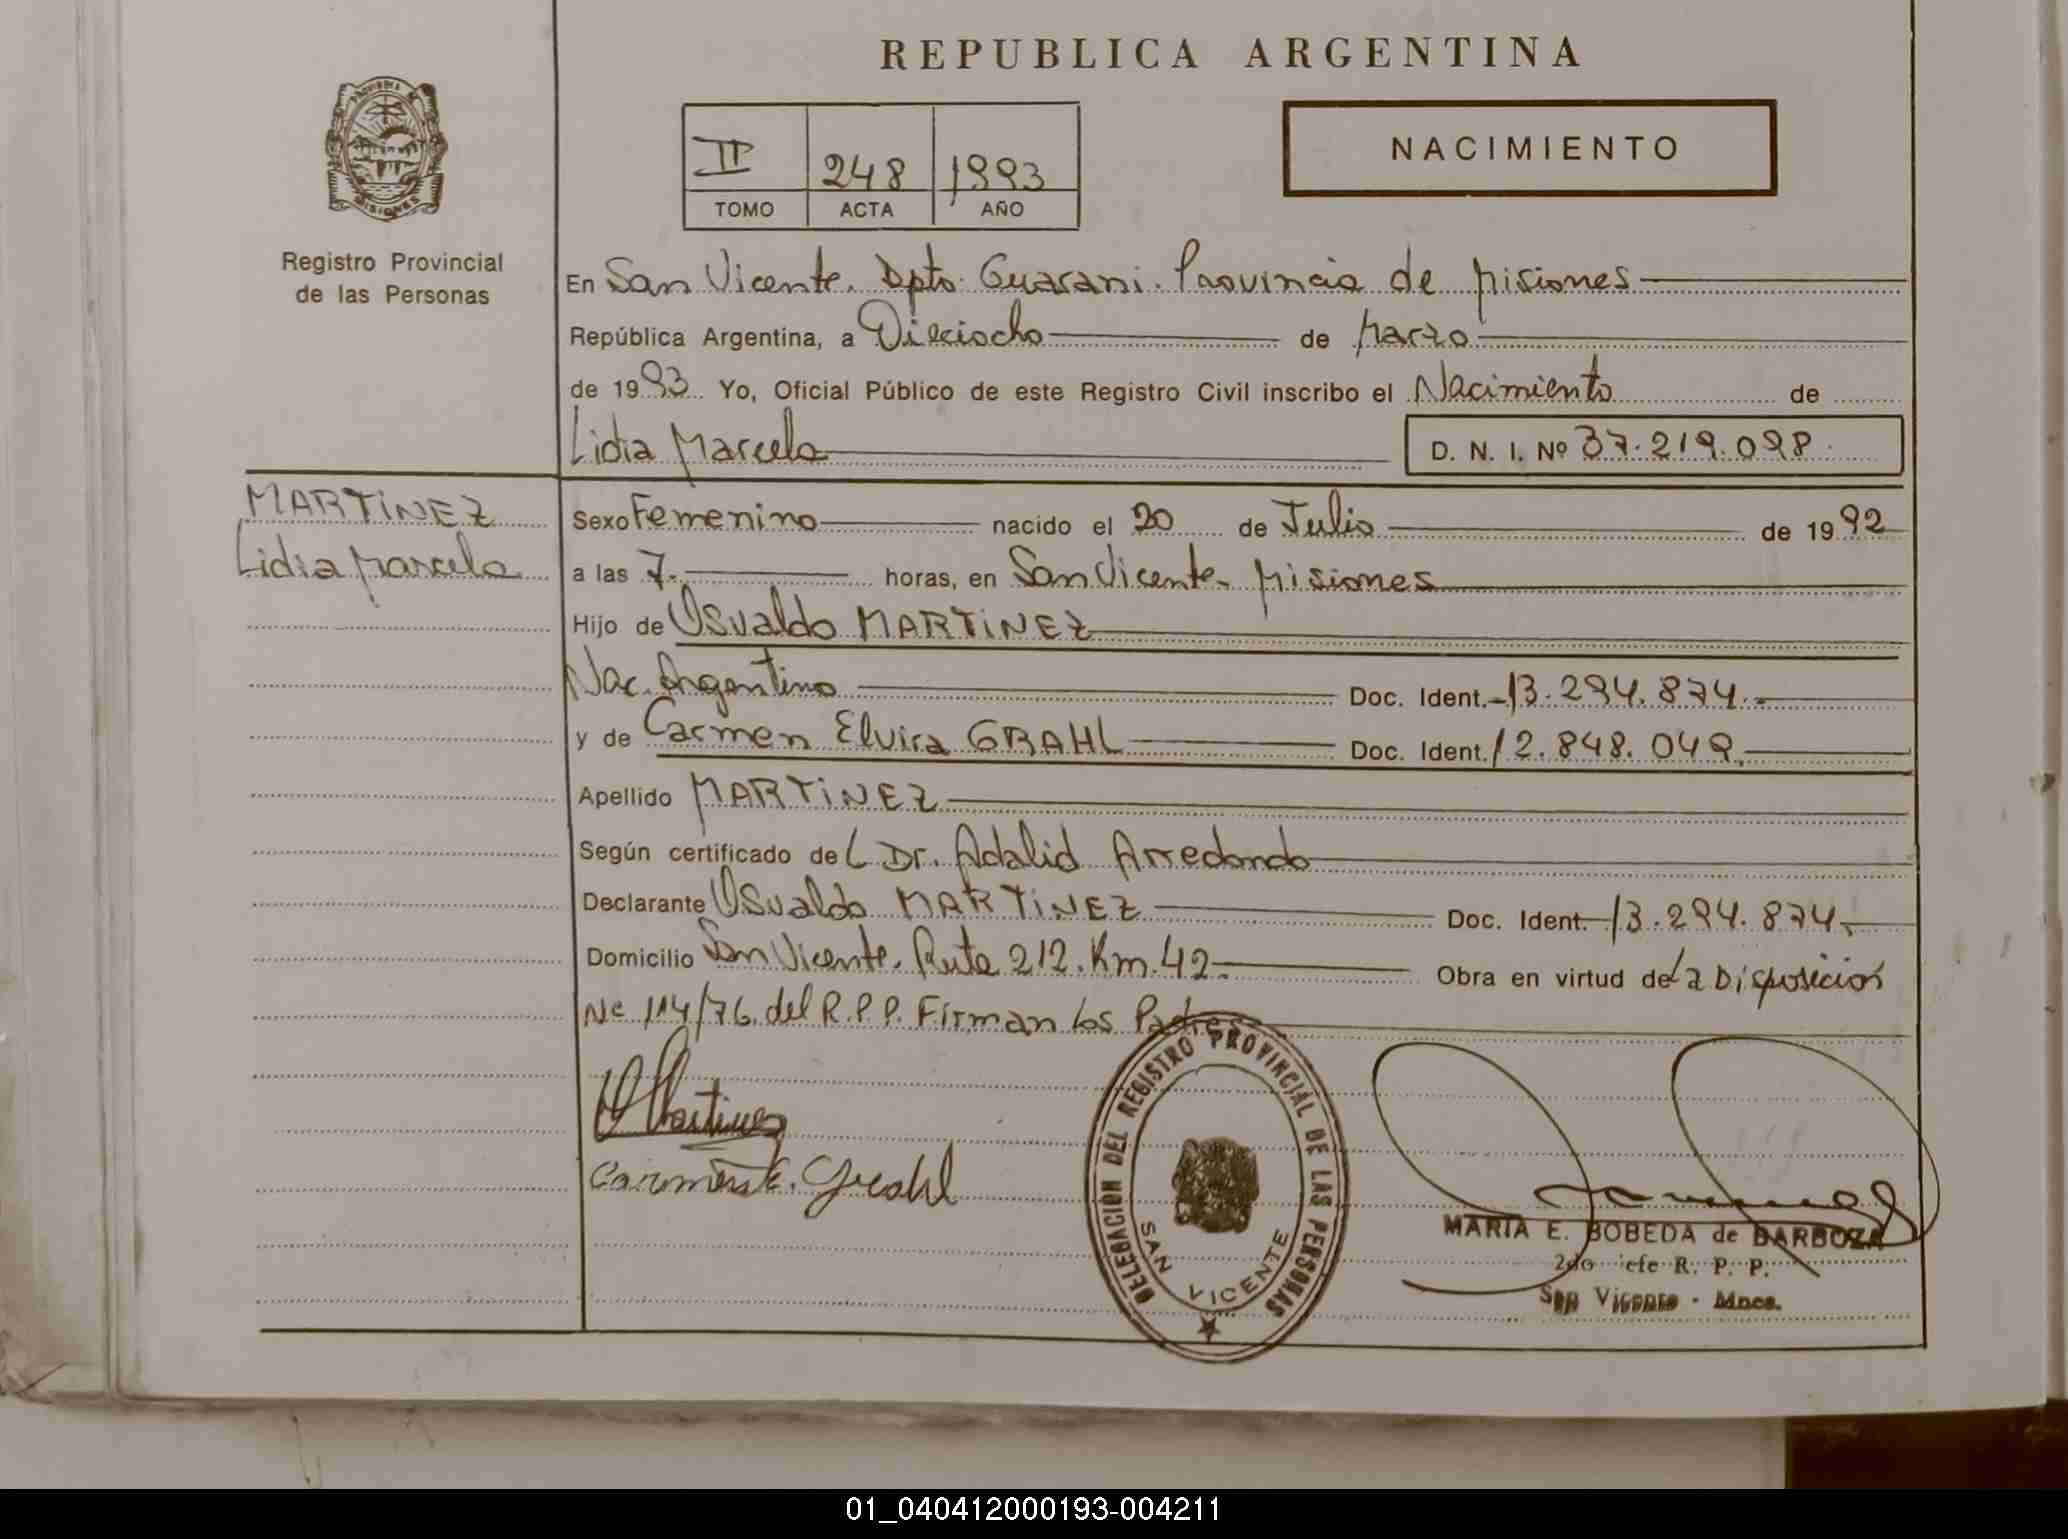 REPUBLICA ARGENTINA
II 248 1993
TOMO ACTA AÑO
NACIMIENTO
PROVINCIA DE MISIONES
Registro Provincial
de las Personas
En San Vicente. Dpto. Guarani. Provincia de Misiones
República Argentina, a Dieciocho de Marzo
de 1993. Yo, Oficial Público de este Registro Civil inscribo el Nacimiento de
Lidia Marcela D. N. I. Nº 37.219.098.
MARTINEZ
Lidia Marcela
Sexo Femenino nacido el 20 de Julio de 1992
a las 7. horas, en San Vicente. Misiones
Hijo de Osvaldo MARTINEZ
Nac. Argentino Doc. Ident. 13.294.874.-
y de Carmen Elvira GRAHL Doc. Ident. 12.848.049.
Apellido MARTINEZ
Según certificado del Dr. Adalid Arredondo
Declarante Osvaldo MARTINEZ Doc. Ident. 13.294.874.
Domicilio San Vicente. Ruta 212. Km. 42. Obra en virtud de la Disposición
Nº 114/76 del R.P.P. Firman los Padres
O Martinez
Carmen E. Grahl
DELEGACIÓN DEL REGISTRO PROVINCIAL DE LAS PERSONAS
SAN VICENTE
MARIA E. BOBEDA de BARBOZA
2do Jefe R. P. P.
San Vicente - Mnes.
01_040412000193-004211